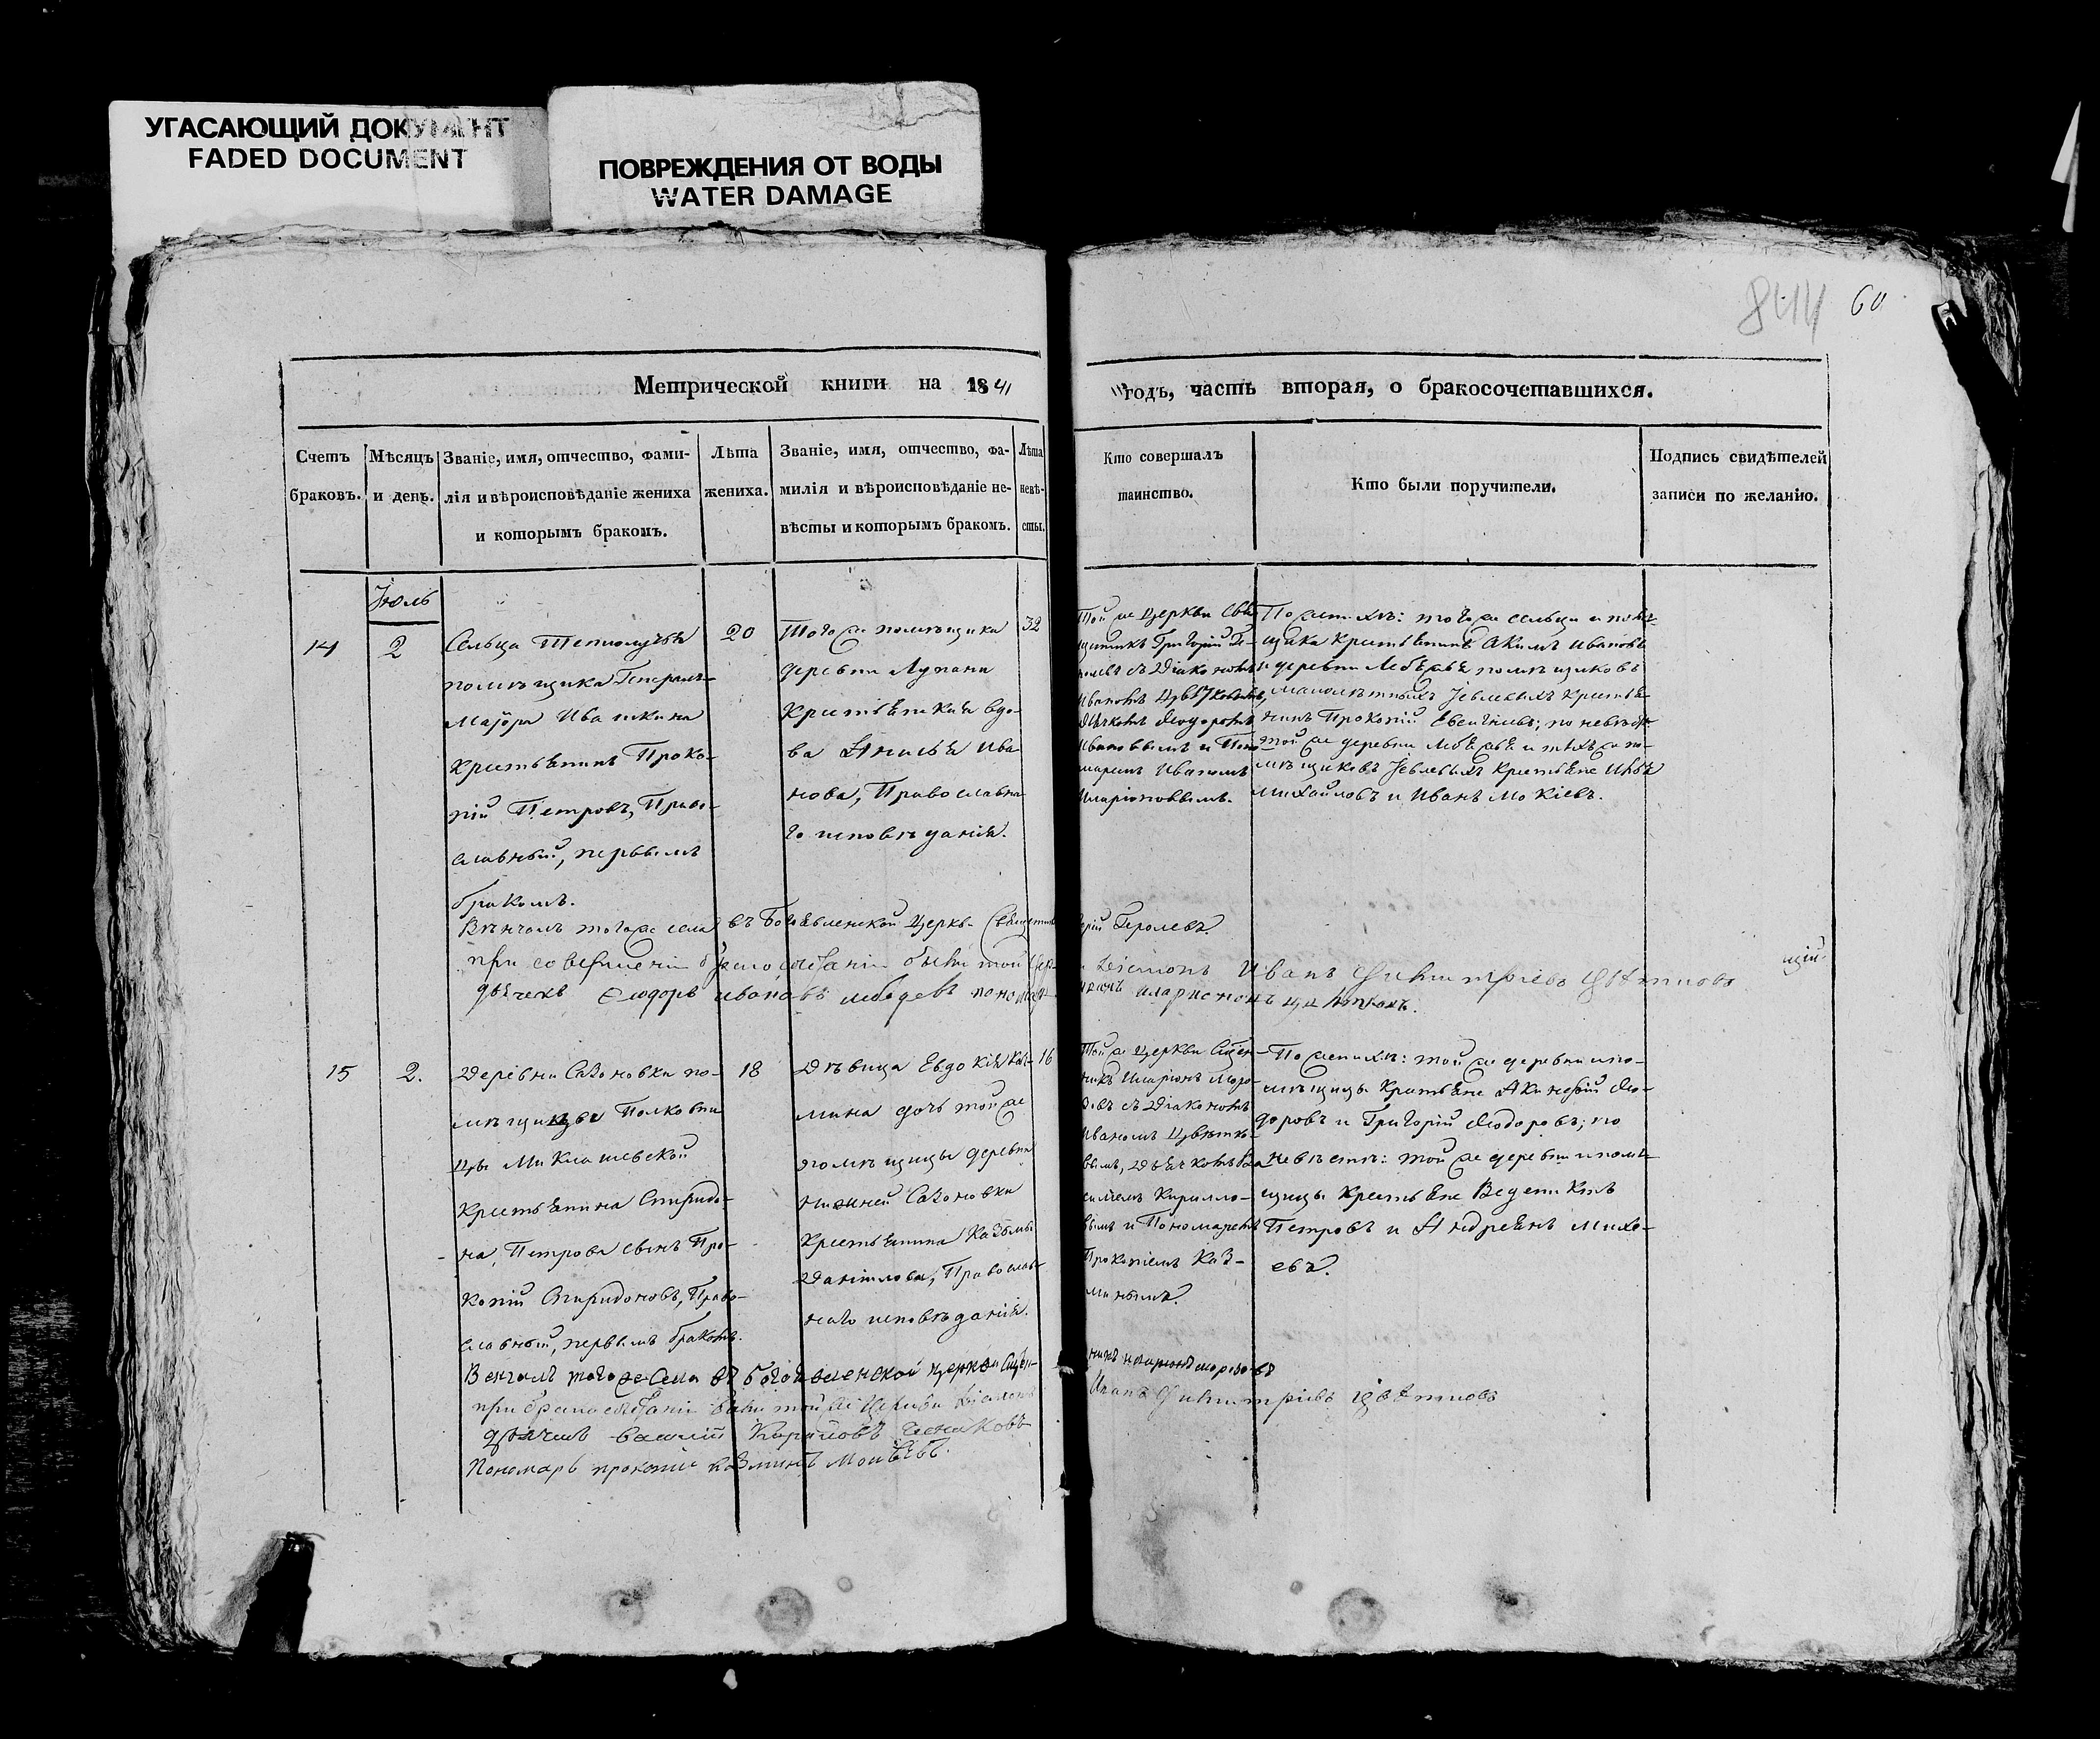 УГАСАЮЩИЙ ДОКУМЕНТ
FADED DOCUMENT
ПОВРЕЖДЕНИЯ ОТ ВОДЫ
WATER DAMAGE
844 60
Метрической книги на 1841
годъ, часть вторая, о бракосочетавшихся.
Счетъ
браковъ.
Мѣсяцъ
и день.
Званіе, имя, отчество, фами-
лія и вѣроисповѣданіе жениха
и которымъ бракомъ.
Лѣта
жениха.
Званіе, имя, отчество, фа-
милія и вѣроисповѣданіе не-
вѣсты и которымъ бракомъ.
Лѣта
невѣ-
сты.
Кто совершалъ
таинство.
Кто были поручители.
Подпись свидѣтелей
записи по желанію.
Іюль
14
2
Сельца
помѣщика Генералъ-
Маіора Ивашкина
крестьянинъ Проко-
пій Петровъ, Право-
славный, первымъ
бракомъ.
20
Того же помѣщика
деревни Лупани
крестьянская вдо-
ва Анисья Ива
нова, Православна
го исповѣданія.
32
Той же Церкви Свя
щенникъ Григорій
съ Діакономъ
Иваномъ Цвѣтковымъ,
Дьячкомъ Феодоромъ
Ивановымъ и Поно
маремъ Иваномъ
Иларіоновымъ.
По женихѣ: того же сельца и помѣ-
щика крестьянинъ Акимъ Ивановъ
и деревни помѣщиковъ
малолѣтныхъ крестья
нинъ Прокопій; по невѣстѣ
той же деревни и тѣхъ же по-
мѣщиковъ крестьяне
Михайловъ и Иванъ Мокіевъ.
Вѣнчалъ того же села въ Богоявленской Церкви Священник
при совершеніи бракосочетанія были той Цер-
дьячекъ Феодоръ Ивановъ Лебедевъ пономарь
Діаконъ Иванъ Димитріевъ Цвѣтковъ
15
2.
Деревни Сазоновки по-
мѣщицы Полковни
цы Миклашевской
крестьянина Спиридо-
на Петрова сынъ Про-
копій Спиридоновъ, Право-
славный, первымъ бракомъ.
18
Дѣвица Евдокія Каз-
мина дочь той же
помѣщицы деревни
нижней Сазоновки
крестьянина Казьмы
Данилова, Православ
наго исповѣданія.
16
Той же Церкви Сщен-
никъ Иларіонъ Моро-
зовъ съ Діакономъ
Иваномъ Цвѣтко-
вымъ, Дьячкомъ Ва
силіемъ Кирилло-
вымъ и Пономаремъ
Прокопіемъ Каз-
минымъ.
По женихѣ: той же деревни и по-
мѣщицы крестьяне Акинфій Фео-
доровъ и Григорій Феодоровъ; по
невѣстѣ: той же деревни и помѣ-
щицы крестьяне Ведениктъ
Петровъ и Андреянъ Михе-
евъ.
Венчалъ того же Села въ богоявленской церкви Сщен-
никъ иларионъ морозовъ
при бракосочетаніи были той же Церкви Діаконъ
Иванъ Димитріевъ Цвѣтковъ
дьячекъ василий Кириловъ
Пономарь прокопий казминъ